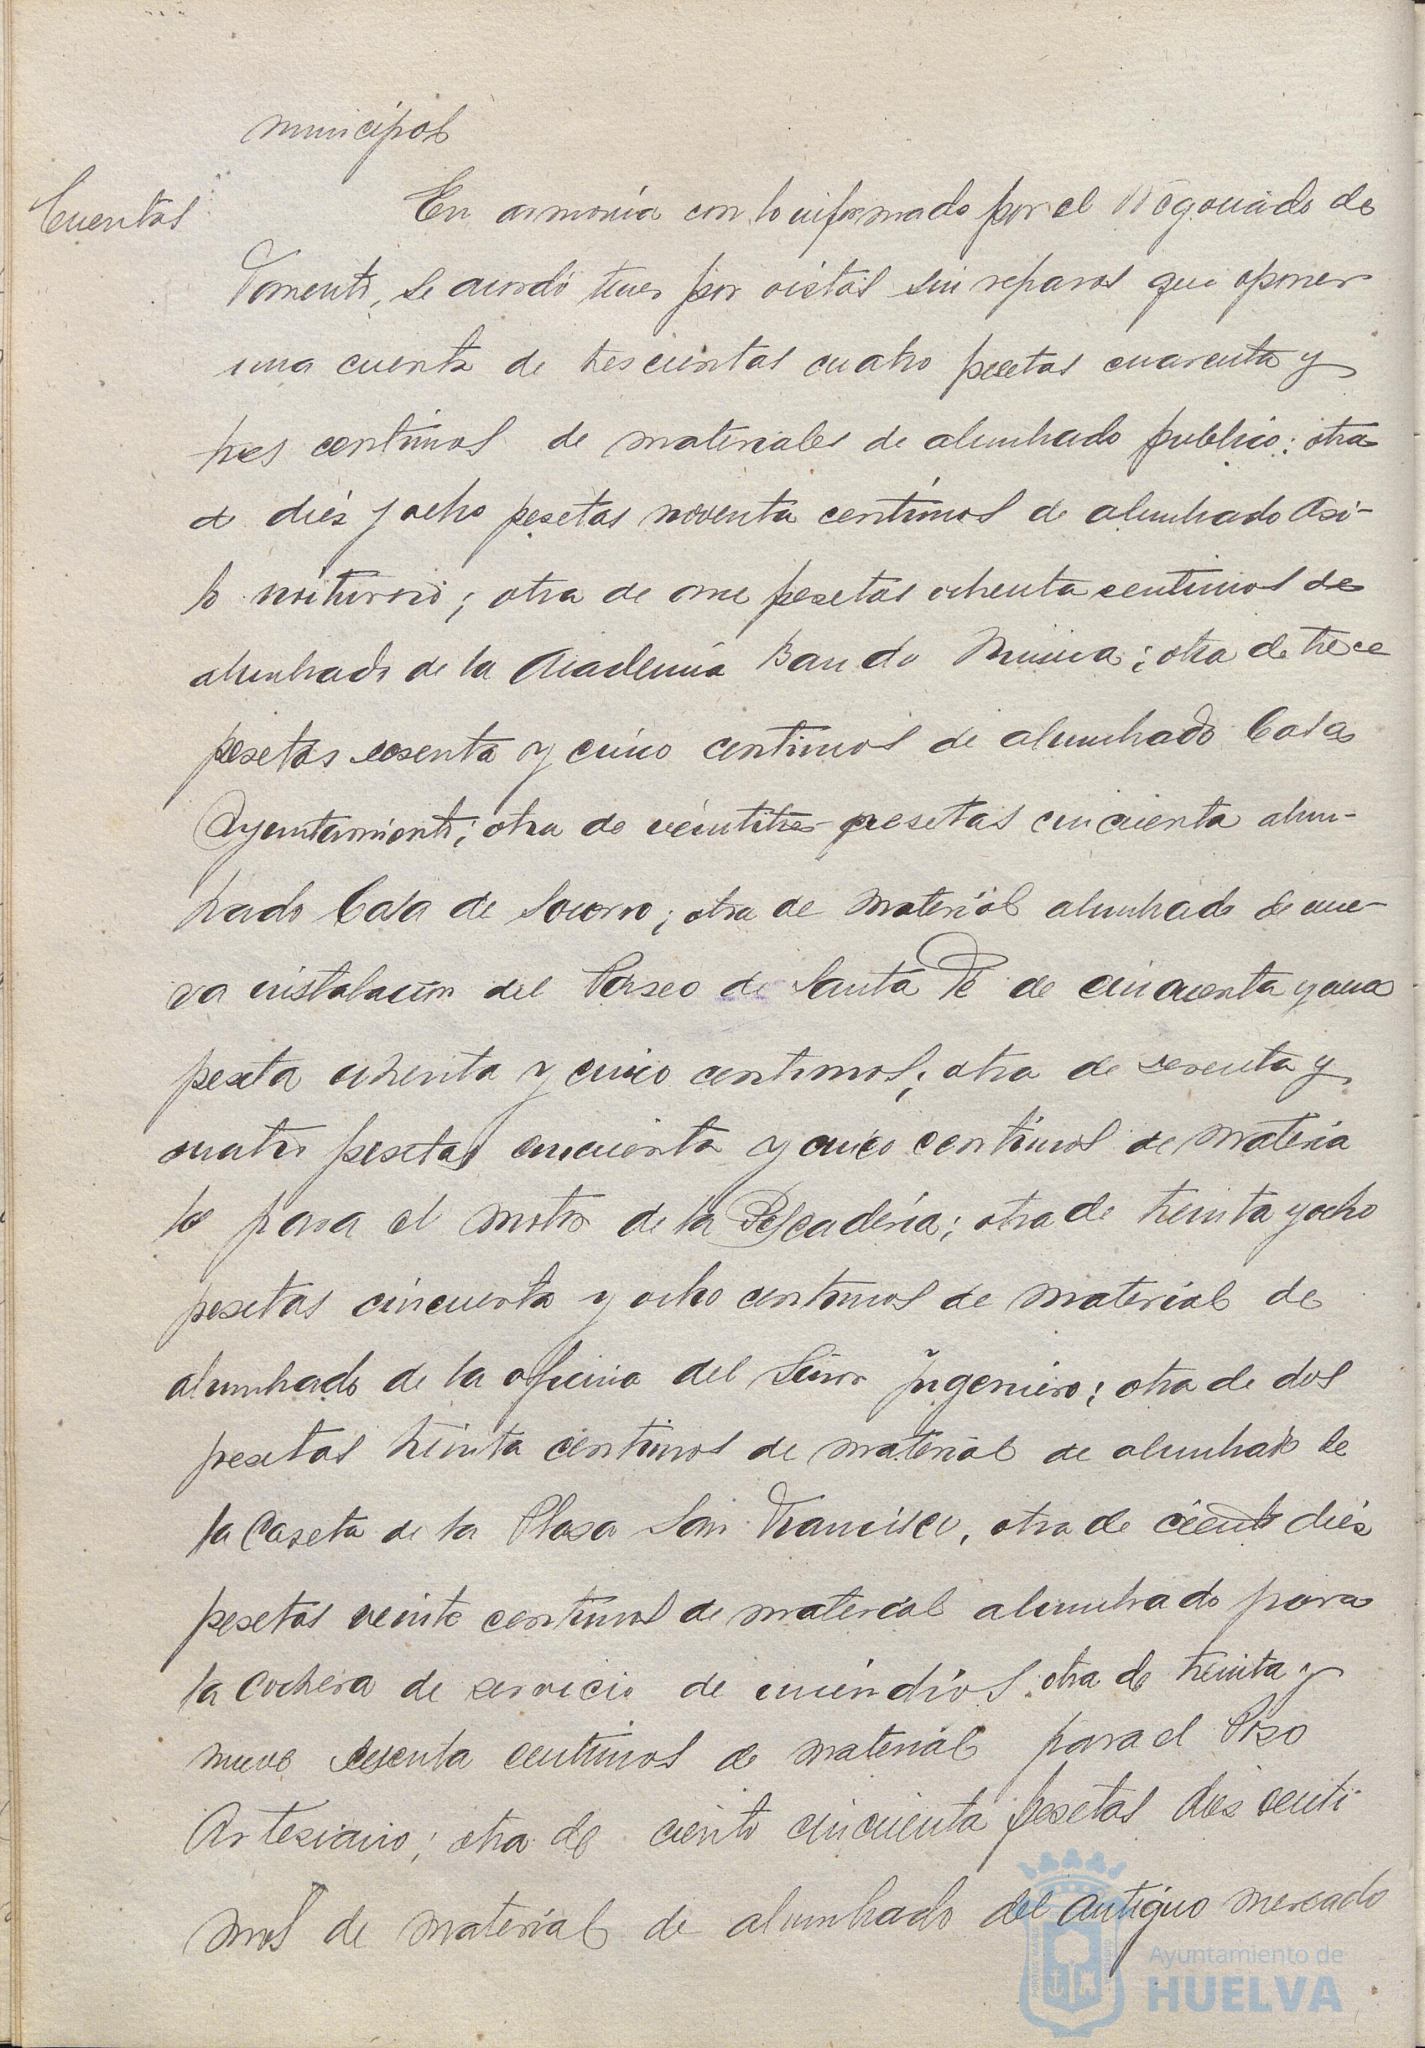 municipal
Cuentas
En armonía con lo informado por el Negociado de
Fomento, se acordó tener por vistas sin reparos que oponer
una cuenta de trescientas cuatro pesetas cuarenta y
tres centimos de materiales de alumbrado publico; otra
de diés y ocho pesetas noventa centimos de alumbrado Asi-
lo nocturno; otra de once pesetas ochenta centimos de
alumbrado de la Academia Banda Musica; otra de trece
pesetas sesenta y cinco centimos de alumbrado Casa
Ayuntamiento; otra de veintitres pesetas cincuenta alum-
brado Casa de Socorro; otra de material alumbrado de nue-
va instalacion del Paseo de Santa Fé de cincuenta y una
peseta ochenta y cinco centimos; otra de setenta y
cuatro pesetas cincuenta y cinco centimos de materia
les para el motor de la Pescadería; otra de treinta y ocho
pesetas cincuenta y ocho centimos de material de
alumbrado de la oficina del Señor Ingeniero; otra de dos
pesetas treinta centimos de material de alumbrado de
la Caseta de la Plaza San Francisco, otra de ciento diés
pesetas veinte centimos de material alumbrado para
la Cochera de servicio de incéndios, otra de treinta y
nueve sesenta centimos de material para el Pozo
Artesiano; otra de ciento cincuenta pesetas diez centi-
mos de material de alumbrado del antiguo mercado
Ayuntamiento de
HUELVA